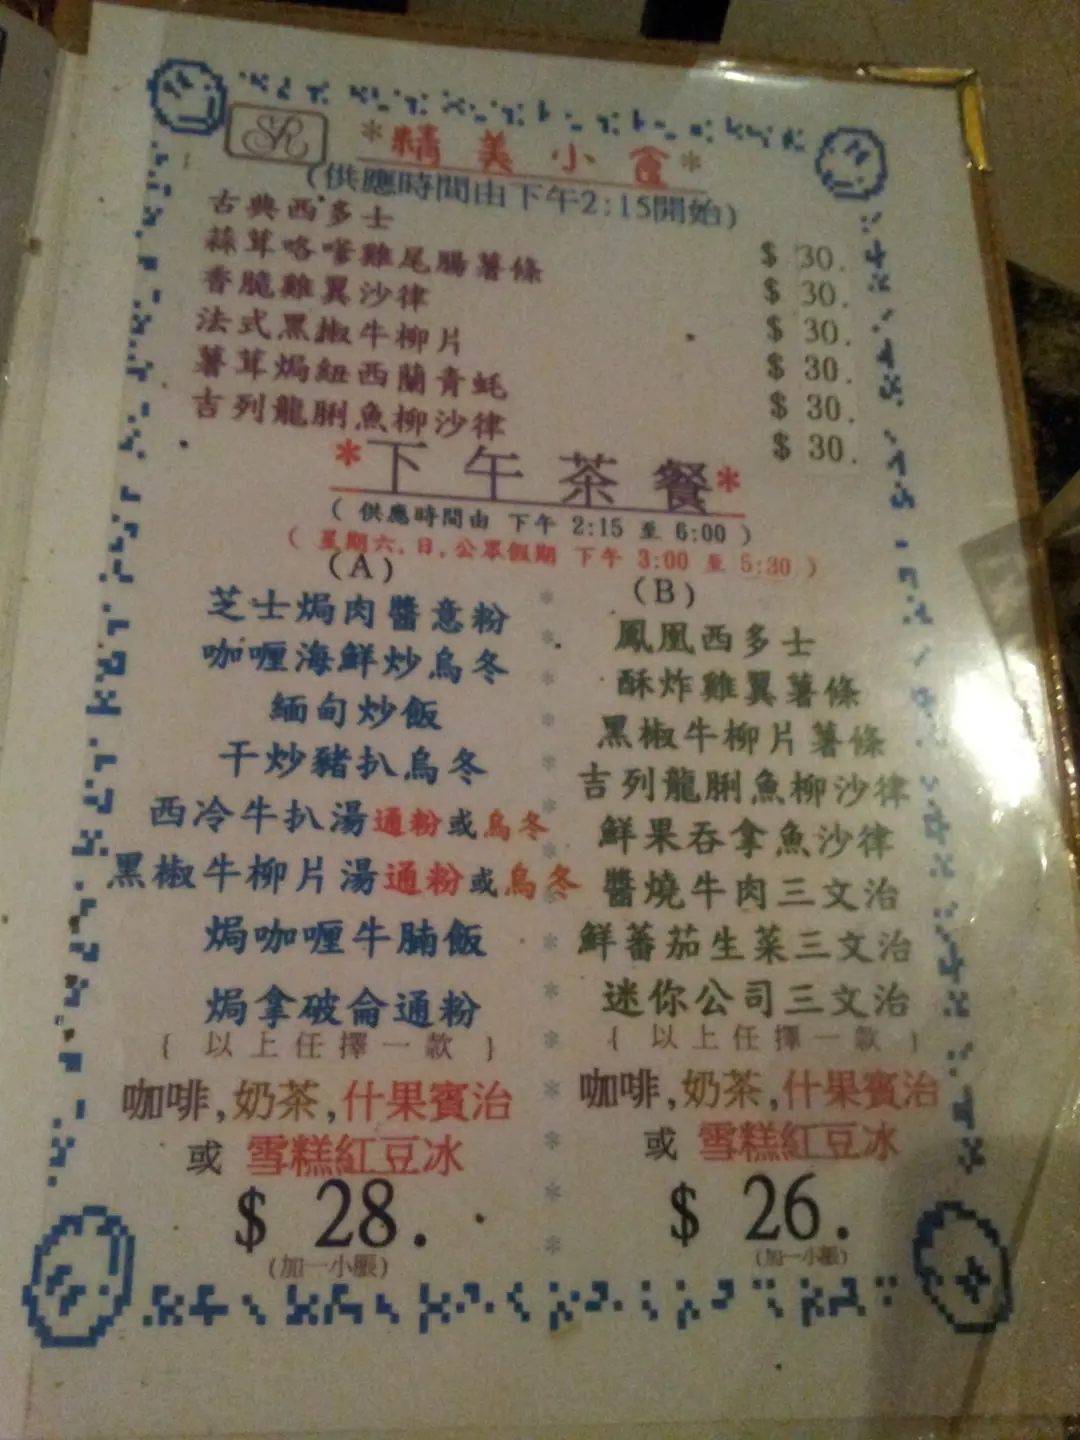 SR
*精美小食*
(供應時間由下午2:15開始)
古典西多士 $ 30.
蒜茸咯嗲雞尾腸薯條 $ 30.
香脆雞翼沙律 $ 30.
法式黑椒牛柳片 $ 30.
薯茸焗紐西蘭青蚝 $ 30.
吉列龍脷魚柳沙律 $ 30.
*下午茶餐*
( 供應時間由 下午 2:15 至 6:00 )
( 星期六,日,公眾假期 下午 3:00 至 5:30 )
(A)
芝士焗肉醬意粉
咖喱海鮮炒烏冬
緬甸炒飯
干炒豬扒烏冬
西冷牛扒湯通粉或烏冬
黑椒牛柳片湯通粉或烏冬
焗咖喱牛腩飯
焗拿破侖通粉
{ 以上任擇一款 }
咖啡,奶茶,什果賓治
或 雪糕紅豆冰
$ 28.
(加一小賬)
(B)
鳳凰西多士
酥炸雞翼薯條
黑椒牛柳片薯條
吉列龍脷魚柳沙律
鮮果吞拿魚沙律
醬燒牛肉三文治
鮮蕃茄生菜三文治
迷你公司三文治
{ 以上任擇一款 }
咖啡,奶茶,什果賓治
或 雪糕紅豆冰
$ 26.
(加一小賬)